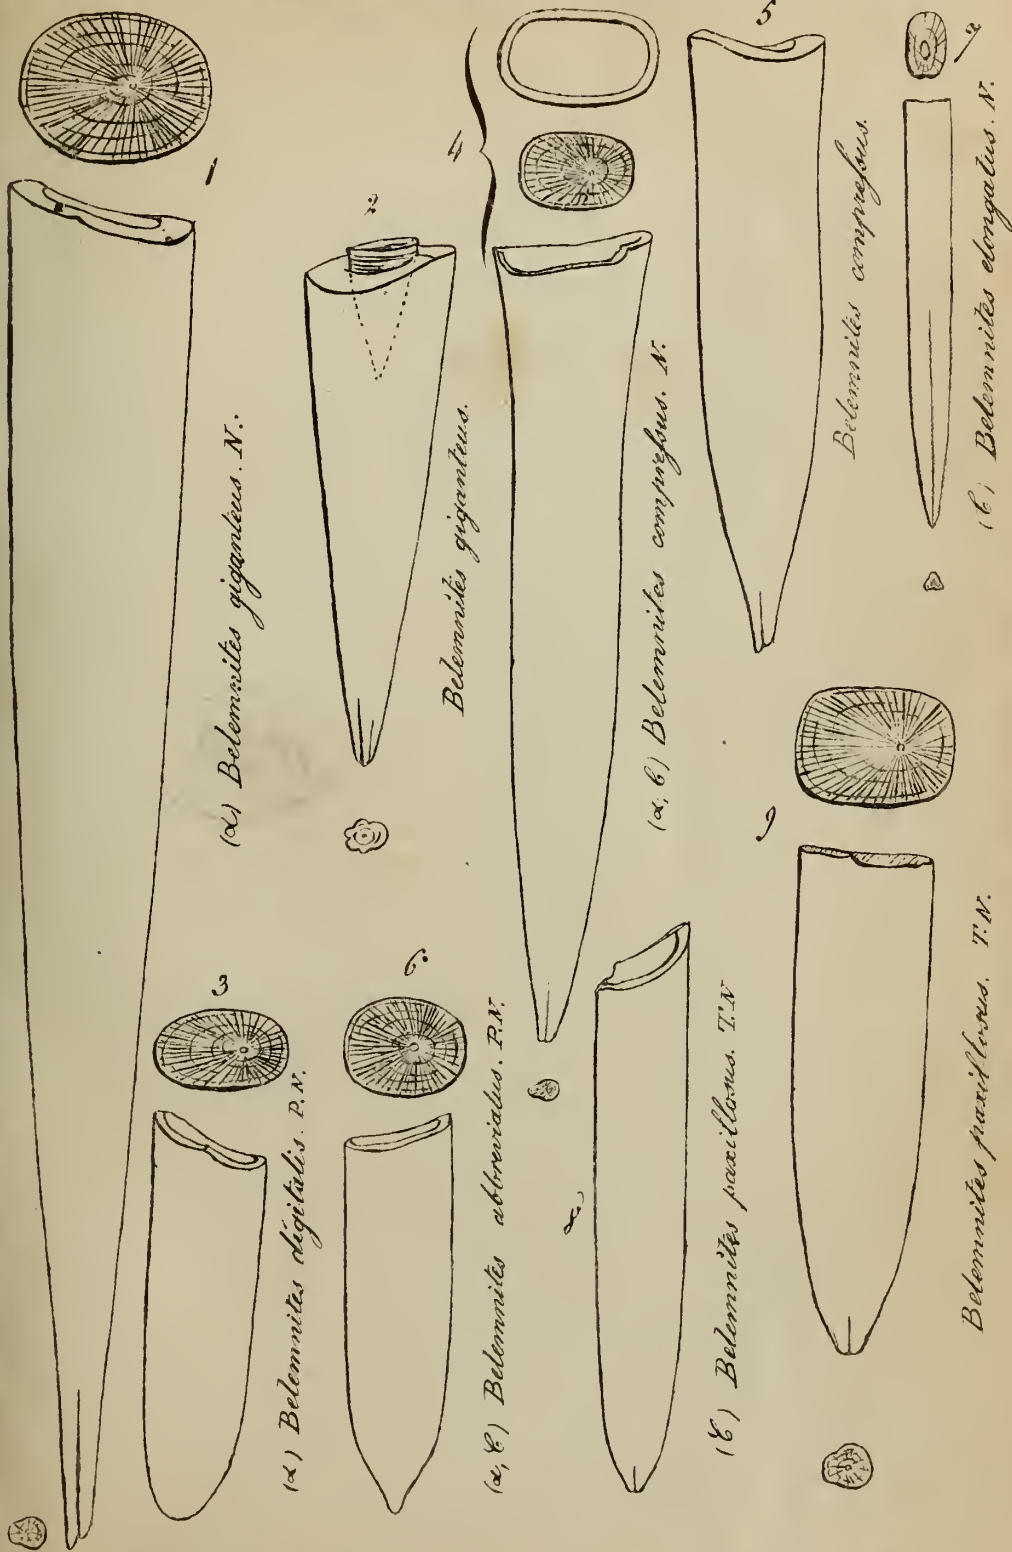 1
(α) Belemnites giganteus. N.
2
Belemnites giganteus.
3
(α) Belemnites digitalis. P.N.
4
(α, β) Belemnites compreſsus. N.
5
Belemnites compreſsus.
6
(α, β) Belemnites abbreviatus. P.N.
(β) Belemnites elongatus. N.
(β) Belemnites paxillosus. T.N
9
Belemnites paxillosus. T.N.